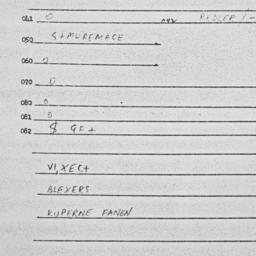 041 0
050 S+MUREMACE
060 0
070 0
080 0
081 0
082 $ GF +
VI, XEC+
BLEXERS
KUPERNE FANEN